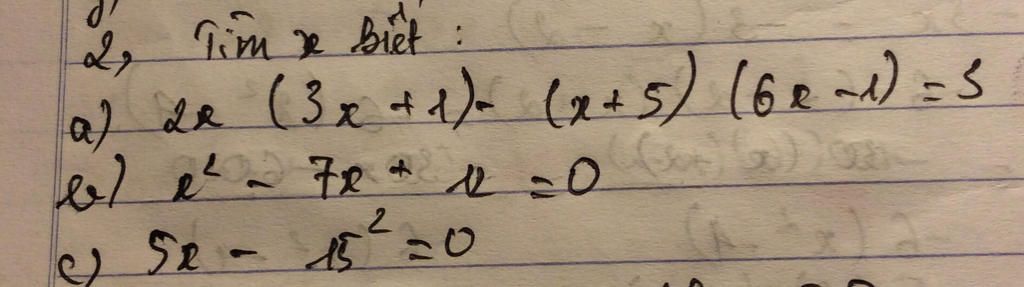 2, Tìm x biết :
a) 2x (3x + 1) - (x + 5) (6x - 1) = 3
b) x² - 7x + 12 = 0
c) 5x - 15² = 0